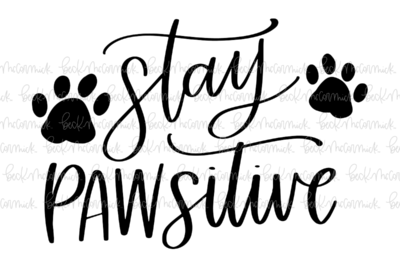 stay
PAWsitive